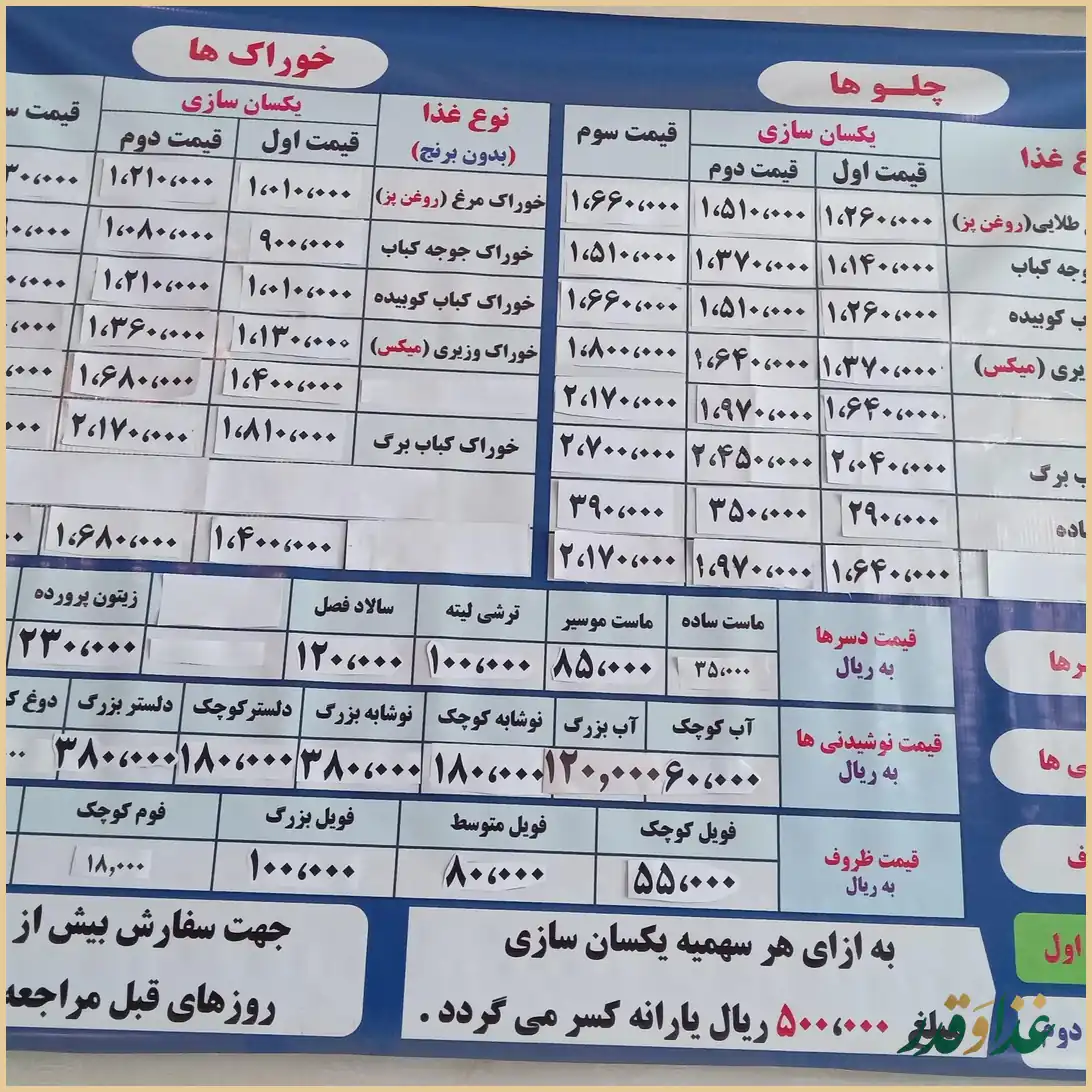 چلـو ها
ع غذا
یکسان سازی
قیمت سوم
قیمت اول
قیمت دوم
طلایی (روغن پز) ۱،۲۶۰،۰۰۰ ۱،۵۱۰،۰۰۰ ۱،۶۶۰،۰۰۰
وجه کباب ۱،۱۴۰،۰۰۰ ۱،۳۷۰،۰۰۰ ۱،۵۱۰،۰۰۰
ب کوبیده ۱،۲۶۰،۰۰۰ ۱،۵۱۰،۰۰۰ ۱،۶۶۰،۰۰۰
یری (میکس) ۱،۳۷۰،۰۰۰ ۱،۶۴۰،۰۰۰ ۱،۸۰۰،۰۰۰
۱،۶۴۰،۰۰۰ ۱،۹۷۰،۰۰۰ ۲،۱۷۰،۰۰۰
ب برگ ۲،۰۴۰،۰۰۰ ۲،۴۵۰،۰۰۰ ۲،۷۰۰،۰۰۰
ساده ۲۹۰،۰۰۰ ۳۵۰،۰۰۰ ۳۹۰،۰۰۰
۱،۶۴۰،۰۰۰ ۱،۹۷۰،۰۰۰ ۲،۱۷۰،۰۰۰
خوراک ها
نوع غذا
(بدون برنج)
یکسان سازی
قیمت س
قیمت اول
قیمت دوم
خوراک مرغ (روغن پز) ۱،۰۱۰،۰۰۰ ۱،۲۱۰،۰۰۰ ۳۰،۰۰۰
خوراک جوجه کباب ۹۰۰،۰۰۰ ۱،۰۸۰،۰۰۰ ۰،۰۰۰
خوراک کباب کوبیده ۱،۰۱۰،۰۰۰ ۱،۲۱۰،۰۰۰ ۰،۰۰۰
خوراک وزیری (میکس) ۱،۱۳۰،۰۰۰ ۱،۳۶۰،۰۰۰ ۰،۰۰۰
۱،۴۰۰،۰۰۰ ۱،۶۸۰،۰۰۰ ۰۰۰
خوراک کباب برگ ۱،۸۱۰،۰۰۰ ۲،۱۷۰،۰۰۰ ۰۰۰
۱،۴۰۰،۰۰۰ ۱،۶۸۰،۰۰۰ ۰۰
رها
قیمت دسرها
به ریال
ماست ساده ماست موسیر ترشی لیته سالاد فصل زیتون پرورده
۳۵،۰۰۰ ۸۵،۰۰۰ ۱۰۰،۰۰۰ ۱۲۰،۰۰۰ ۲۳۰،۰۰۰
ی ها
قیمت نوشیدنی ها
به ریال
آب کوچک آب بزرگ نوشابه کوچک نوشابه بزرگ دلستر کوچک دلستر بزرگ دوغ ک
۶۰،۰۰۰ ۱۲۰,۰۰۰ ۱۸۰،۰۰۰ ۳۸۰،۰۰۰ ۱۸۰،۰۰۰ ۳۸۰،۰۰۰ ۰۰
ف
قیمت ظروف
به ریال
فویل کوچک فویل متوسط فویل بزرگ فوم کوچک
۵۵،۰۰۰ ۸۰،۰۰۰ ۱۰۰،۰۰۰ ۱۸,۰۰۰
اول
دوم
به ازای هر سهمیه یکسان سازی
مبلغ ۵۰۰،۰۰۰ ریال یارانه کسر می گردد .
جهت سفارش بیش از
روزهای قبل مراجعه
غذا وَ قدر